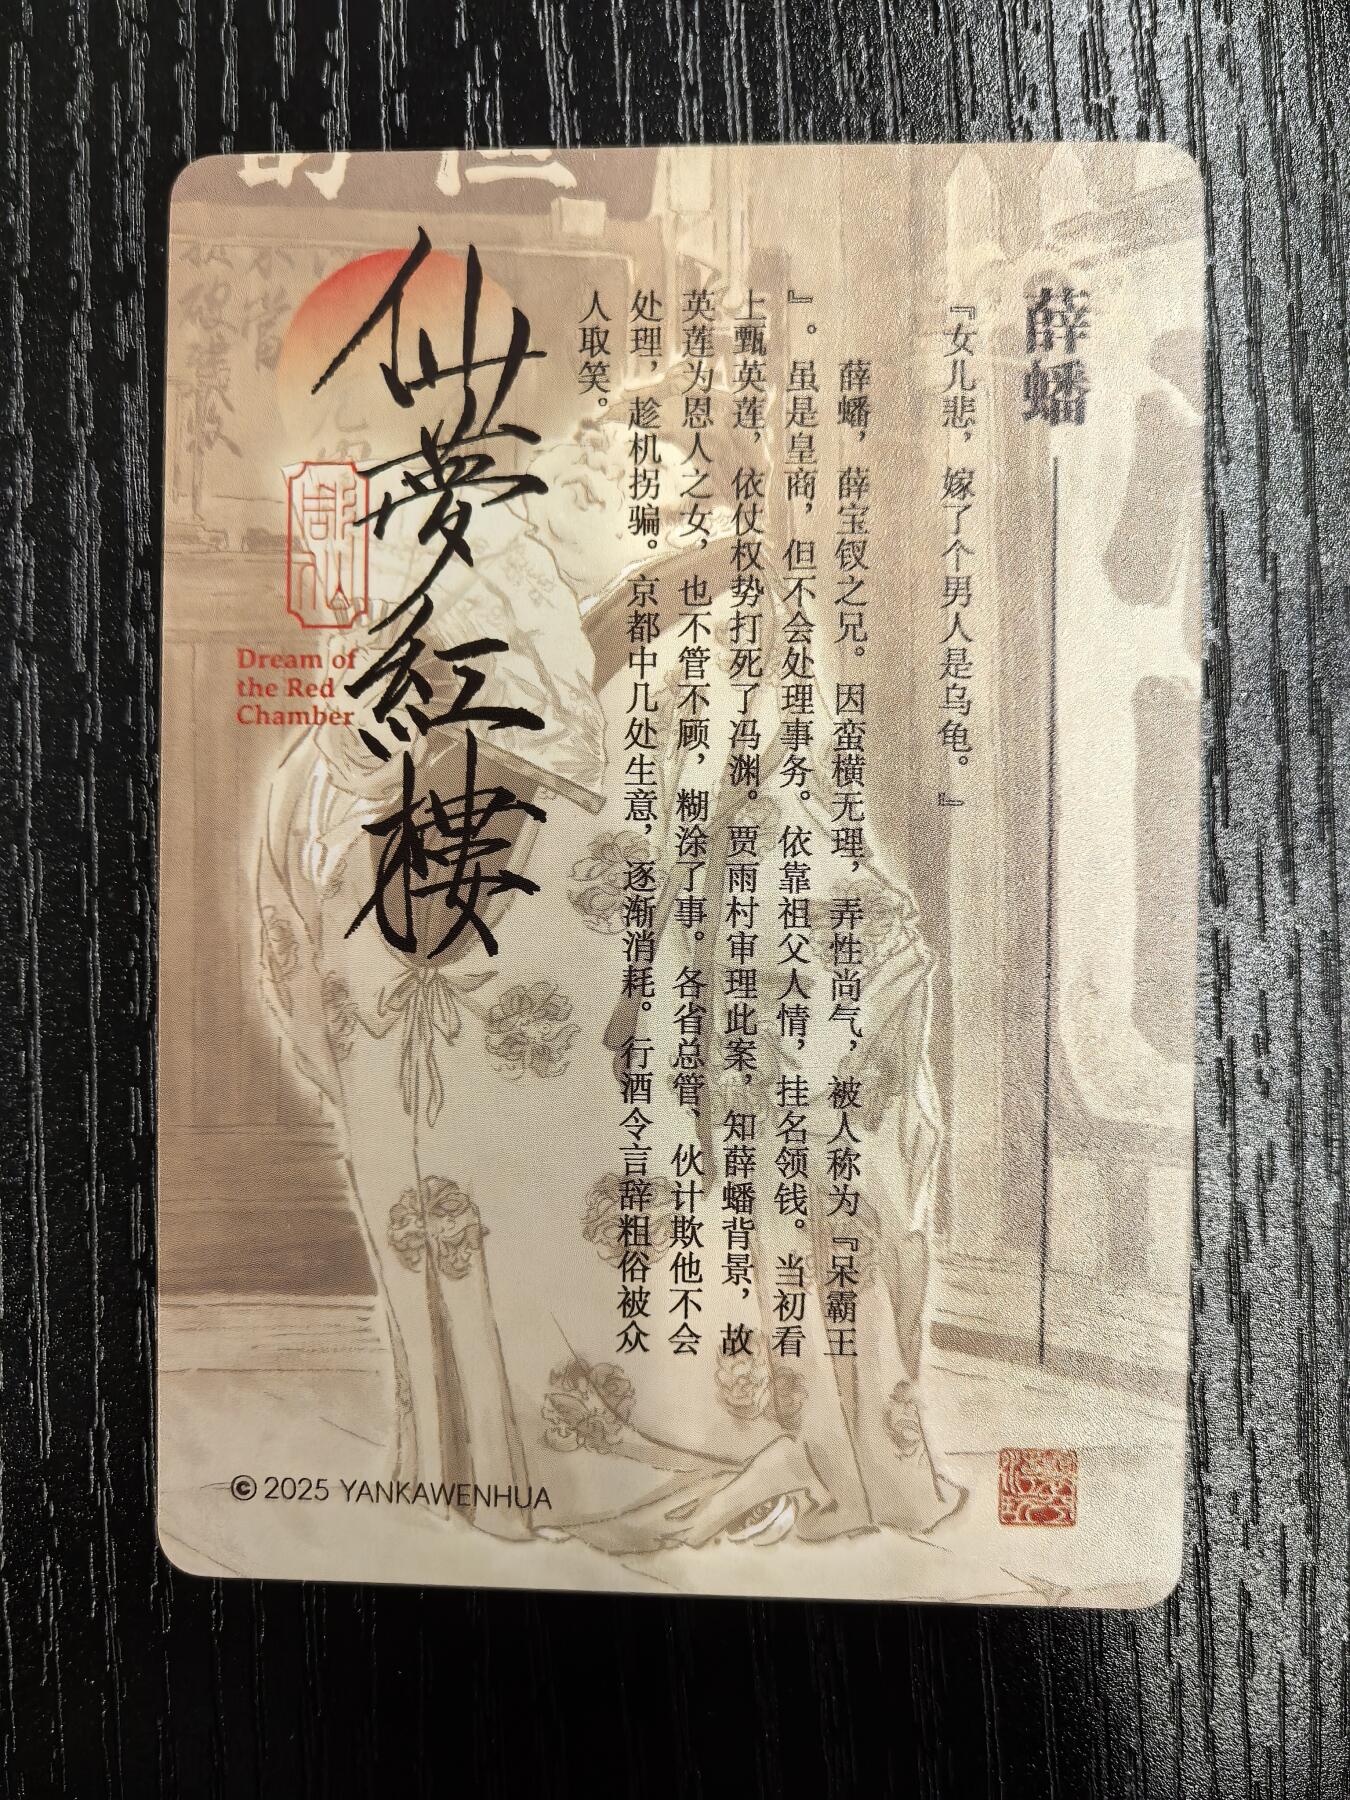 薛蟠
『女儿悲，嫁了个男人是乌龟。』
薛蟠，薛宝钗之兄。因蛮横无理，弄性尚气，被人称为『呆霸王
』。虽是皇商，但不会处理事务。依靠祖父人情，挂名领钱。当初看
上甄英莲，依仗权势打死了冯渊。贾雨村审理此案，知薛蟠背景，故
英莲为恩人之女，也不管不顾，糊涂了事。各省总管、伙计欺他不会
处理，趁机拐骗。京都中几处生意，逐渐消耗。行酒令言辞粗俗被众
人取笑。
仙夢紅樓
Dream of
the Red
Chamber
© 2025 YANKAWENHUA